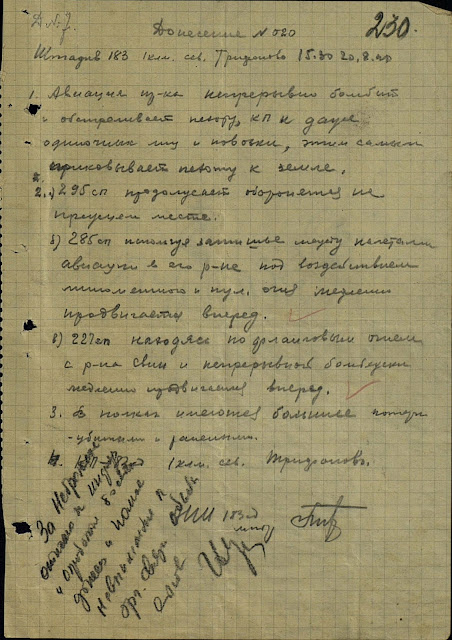 Донесение № 020
230.
Штадив 183 1 км. сев. Трифоново 15.30 20.8.42
1. Авиация пр-ка непрерывно бомбит
и обстреливает пехоту, КП и даже
одиночных лиц и повозки, этим самым
приковывает пехоту к земле.
2. а) 295 сп продолжает обороняться на
прежнем месте.
б) 285 сп используя затишье между налетами
авиации в его р-не под воздействием
минометного и пул. огня медленно
продвигается вперед.
в) 227 сп находясь под фланговым огнем
с р-на и непрерывной бомбежки
медленно продвигается вперед.
3. В полках имеются большие потери
убитыми и ранеными.
4. 1 км. сев. Трифоново.
183 сд
За небрежное
и